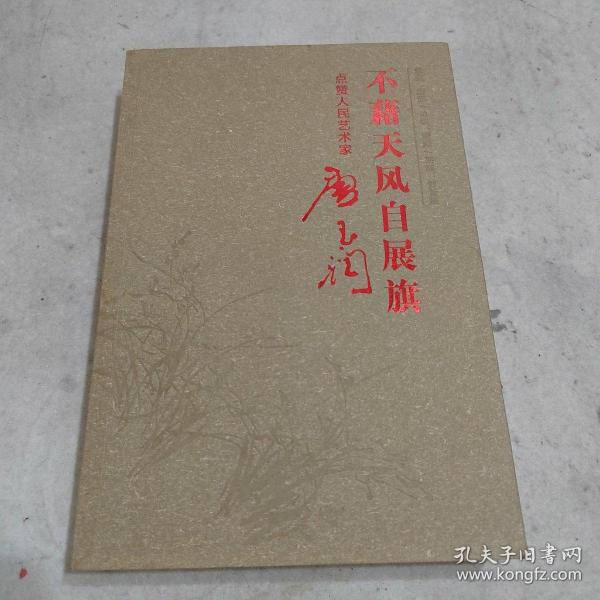 不藉天风自展旗
点赞人民艺术家
唐玉润
孔夫子旧书网
www.kongfz.com